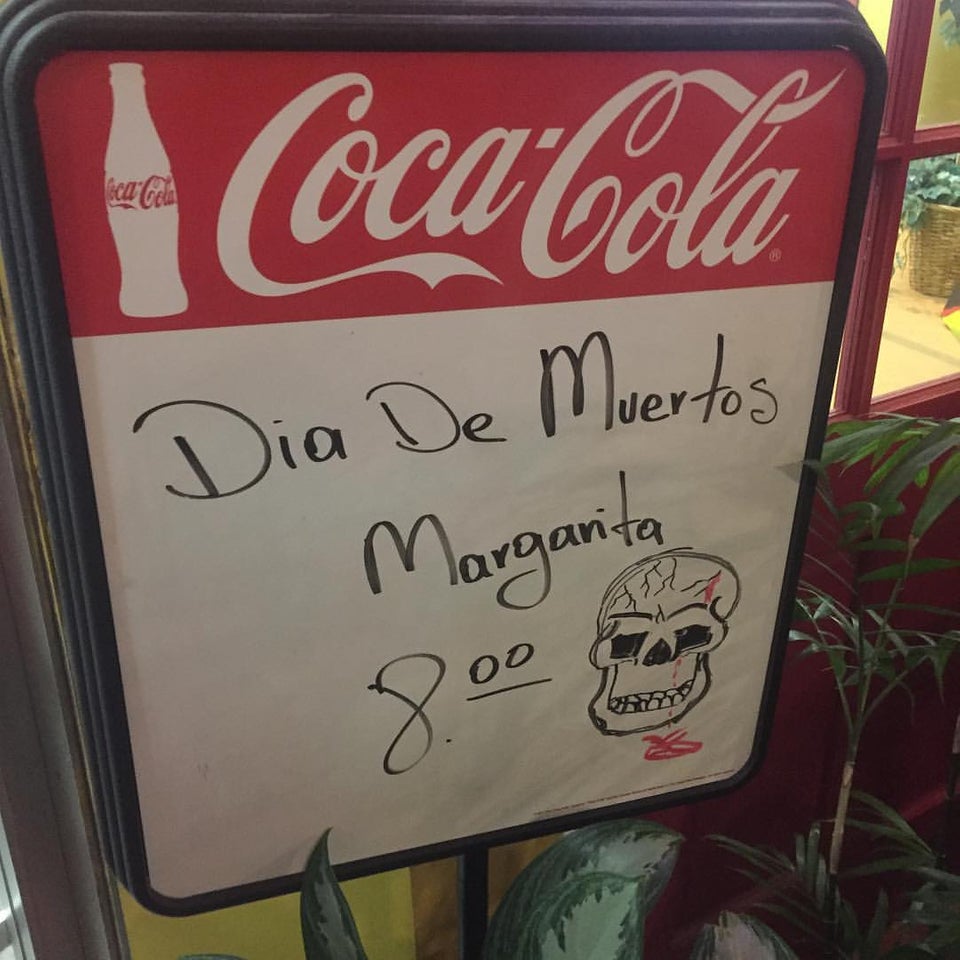 Coca-Cola
Coca-Cola ®
Dia De Muertos
Margarita
8.00